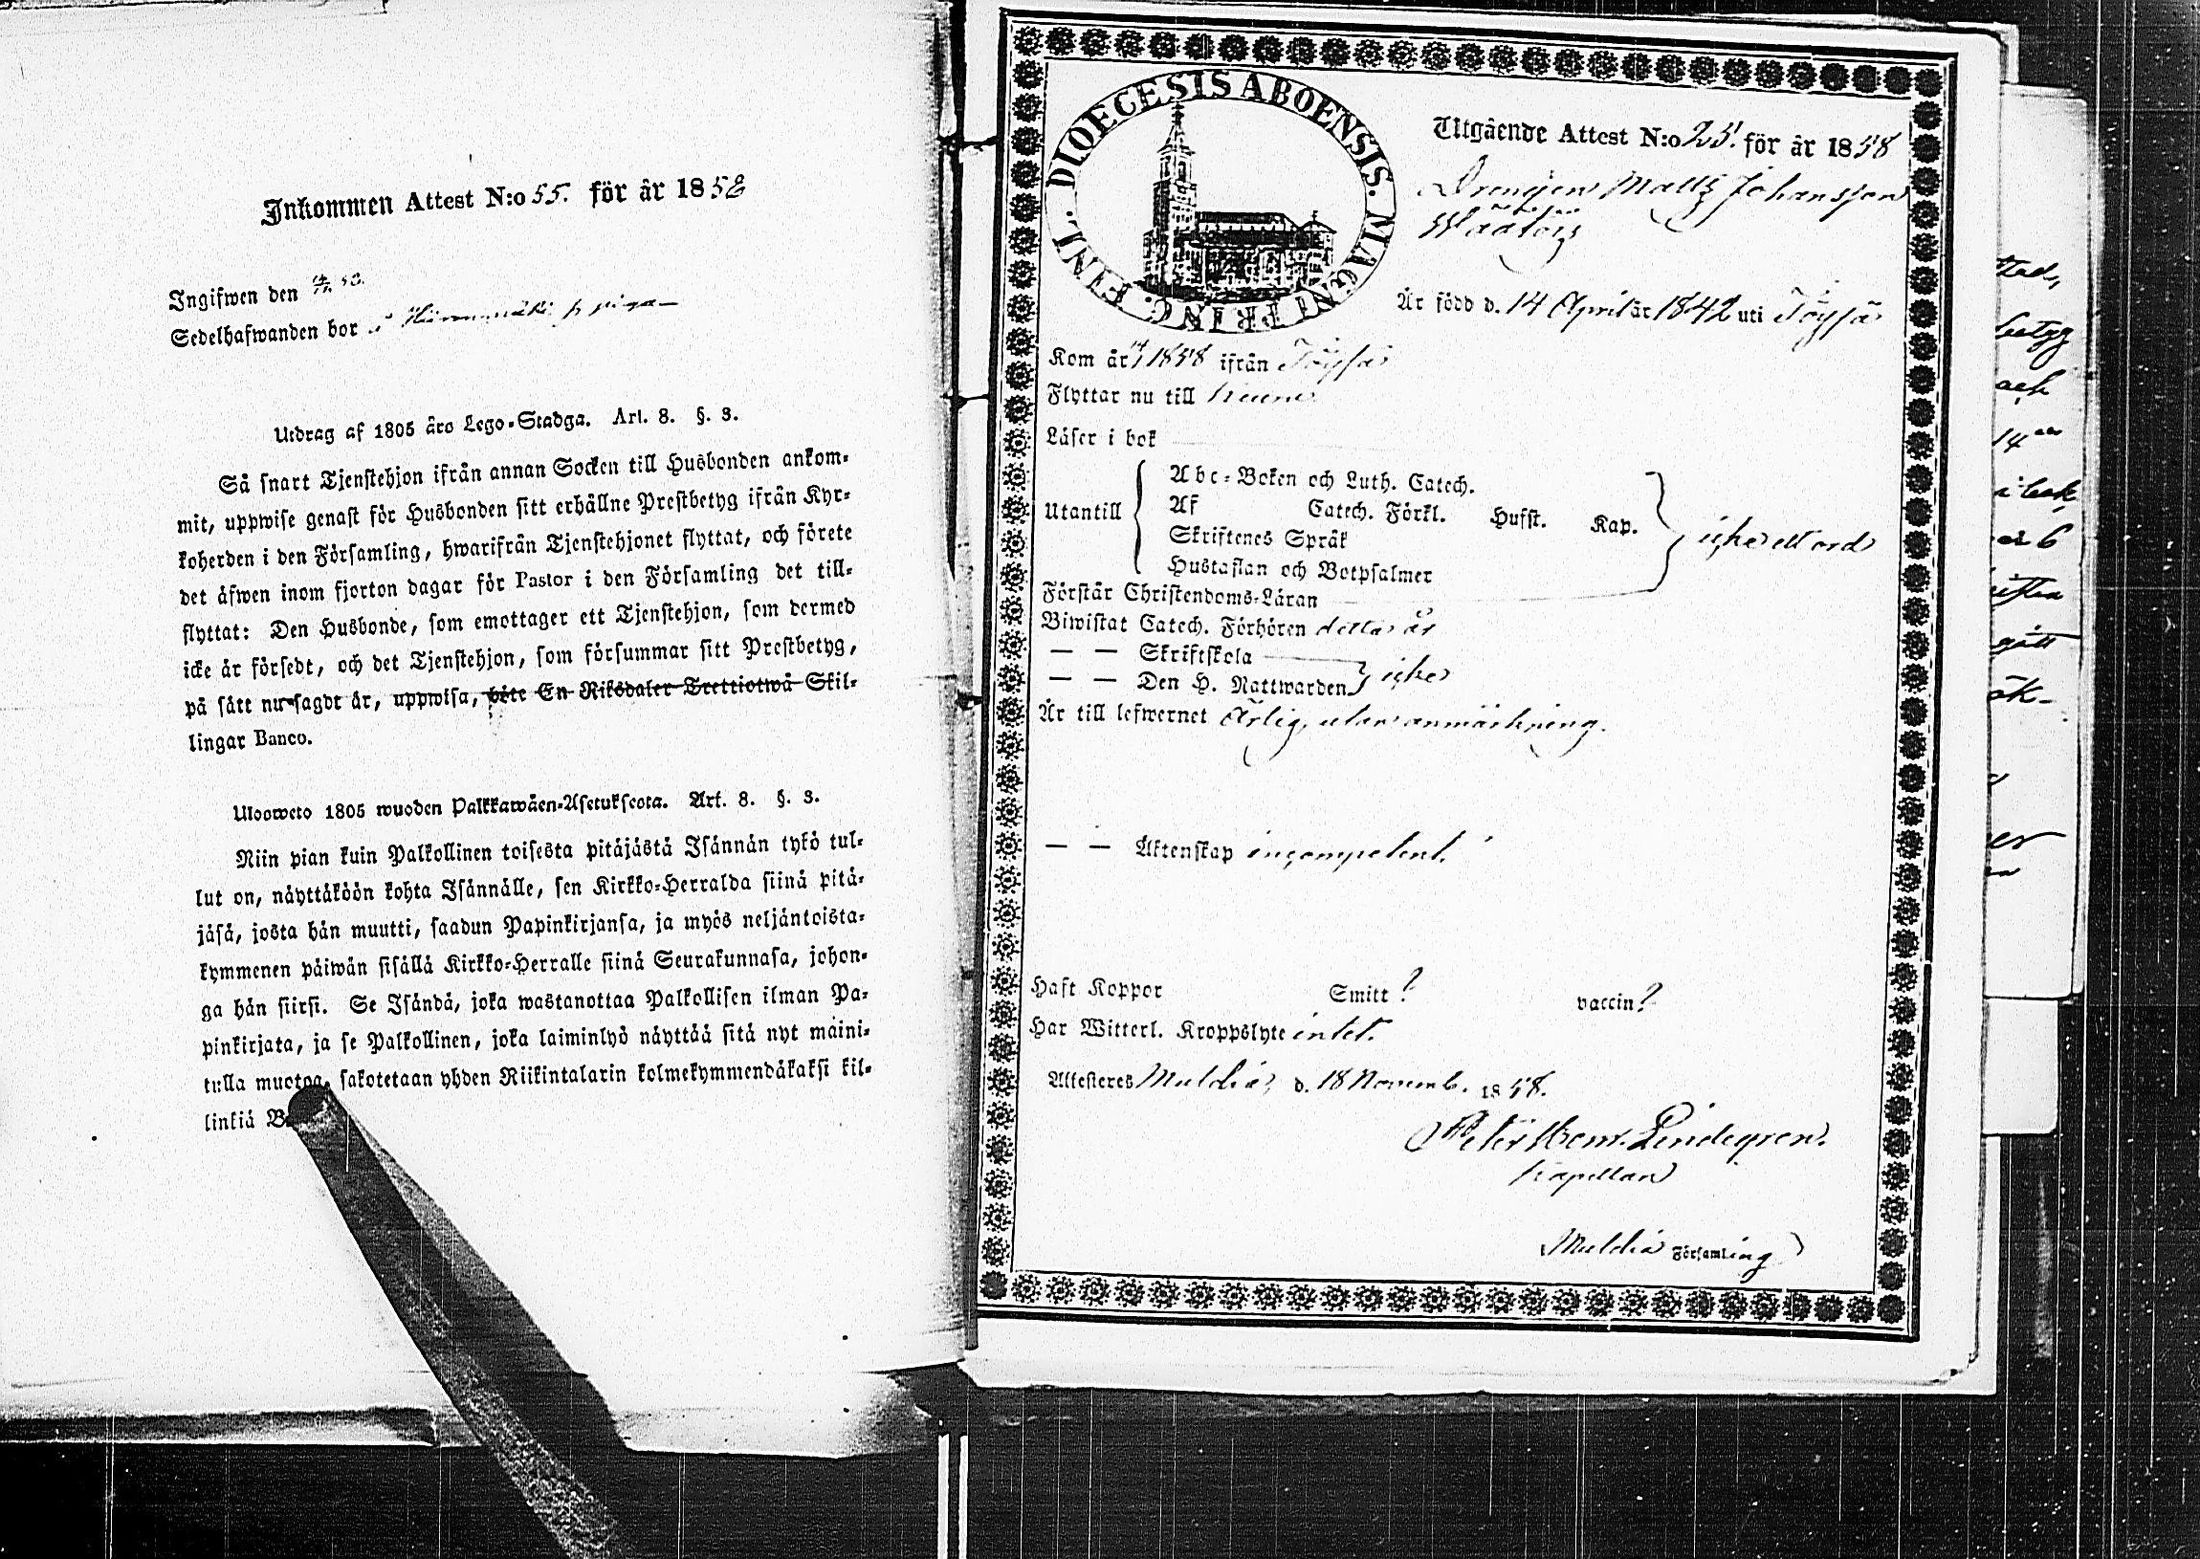 Inkommen Attest N:o 55. för år 1858
Ingifwen den
Sedelhafwanden bor
Utdrag af 1805 års Lego-Stadga. Art. 8. §. 3.
Så snart Tjenstehjon ifrån annan Socken till Husbonden ankom-
mit, uppwise genast för Husbonden sitt erhållne Prestbetyg ifrån Kyr-
koherden i den Församling, hwarifrån Tjenstehjonet flyttat, och förete
det äfwen inom fjorton dagar för Pastor i den Församling det till-
flyttat: Den Husbonde, som emottager ett Tjenstehjon, som dermed
icke är försedt, och det Tjenstehjon, som försummar sitt Prestbetyg,
på sätt nu sagdt är, uppwisa, böte En Riksdaler Trettiotwå Skil-
lingar Banco.
Ulosweto 1805 wuoden Palkkawäen-Asetuksesta. Art. 8. §. 3.
Niin pian kuin Palkollinen toisesta pitäjästä Isännän tykö tul-
lut on, näyttäköön kohta Isännälle, sen Kirkko-Herralda siinä pitä-
jäsä, josta hän muutti, saadun Papinkirjansa, ja myös neljäntoista-
kymmenen päiwän sisällä Kirkko-Herralle siinä Seurakunnasa, johon-
ga hän siirsi. Se Isändä, joka wastanottaa Palkollisen ilman Pa-
pinkirjata, ja se Palkollinen, joka laiminlyö näyttää sitä nyt maini-
tulla muotoa, sakotetaan yhden Riikintalarin kolmekymmendäkaksi kil-
linkiä B
DIOECESIS ABOENSIS. MAGNI PRINC. FINL.
Utgående Attest N:o 25. för år 1858
Drengen Matts Johansson
Är född d. 14 April år 1842 uti Töysä
Kom år 1858 ifrån Töysä
Flyttar nu till
Läser i bok
Utantill
Abc-Boken och Luth. Catech.
Af Catech. Förkl. Hufst. Kap.
Skriftenes Språk
Hustaflan och Botpsalmer
icke ett ord
Förstår Christendoms-Läran
Biwistat Catech. Förhören detta år
— — Skriftskola
— — Den H. Nattwarden
icke
Är till lefwernet Ärlig, utan anmärkning.
— — Äktenskap incompetent.
Haft Koppor Smitt ? vaccin ?
Har Witterl. Kroppslyte intet.
Attesteres Muldia, d. 18 Novemb. 1858.
Peter Henr. Lindegren.
Kapellan
Muldia Församling
betyg
och
gått